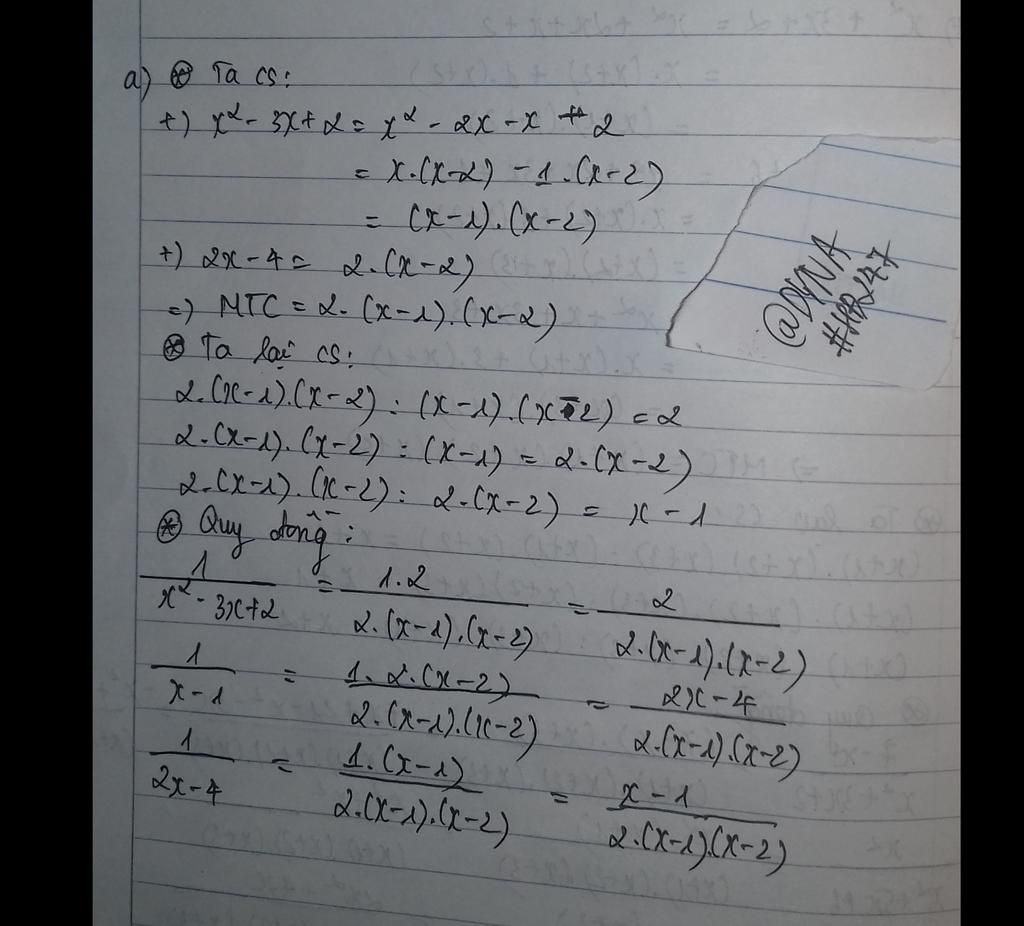 a) ⊛ Ta có:
+) x² - 3x + 2 = x² - 2x - x + 2
= x.(x-2) - 1.(x-2)
= (x-1).(x-2)
+) 2x - 4 = 2.(x-2)
=) MTC = 2.(x-1).(x-2)
@DYNA
#HR247
⊛ Ta lại có:
2.(x-1).(x-2) : (x-1).(x-2) = 2
2.(x-1).(x-2) : (x-1) = 2.(x-2)
2.(x-1).(x-2) : 2.(x-2) = x - 1
⊛ Quy đồng:
1/(x² - 3x + 2) = 1.2/(2.(x-1).(x-2)) = 2/(2.(x-1).(x-2))
1/(x-1) = 1.2.(x-2)/(2.(x-1).(x-2)) = (2x-4)/(2.(x-1).(x-2))
1/(2x-4) = 1.(x-1)/(2.(x-1).(x-2)) = (x-1)/(2.(x-1).(x-2))